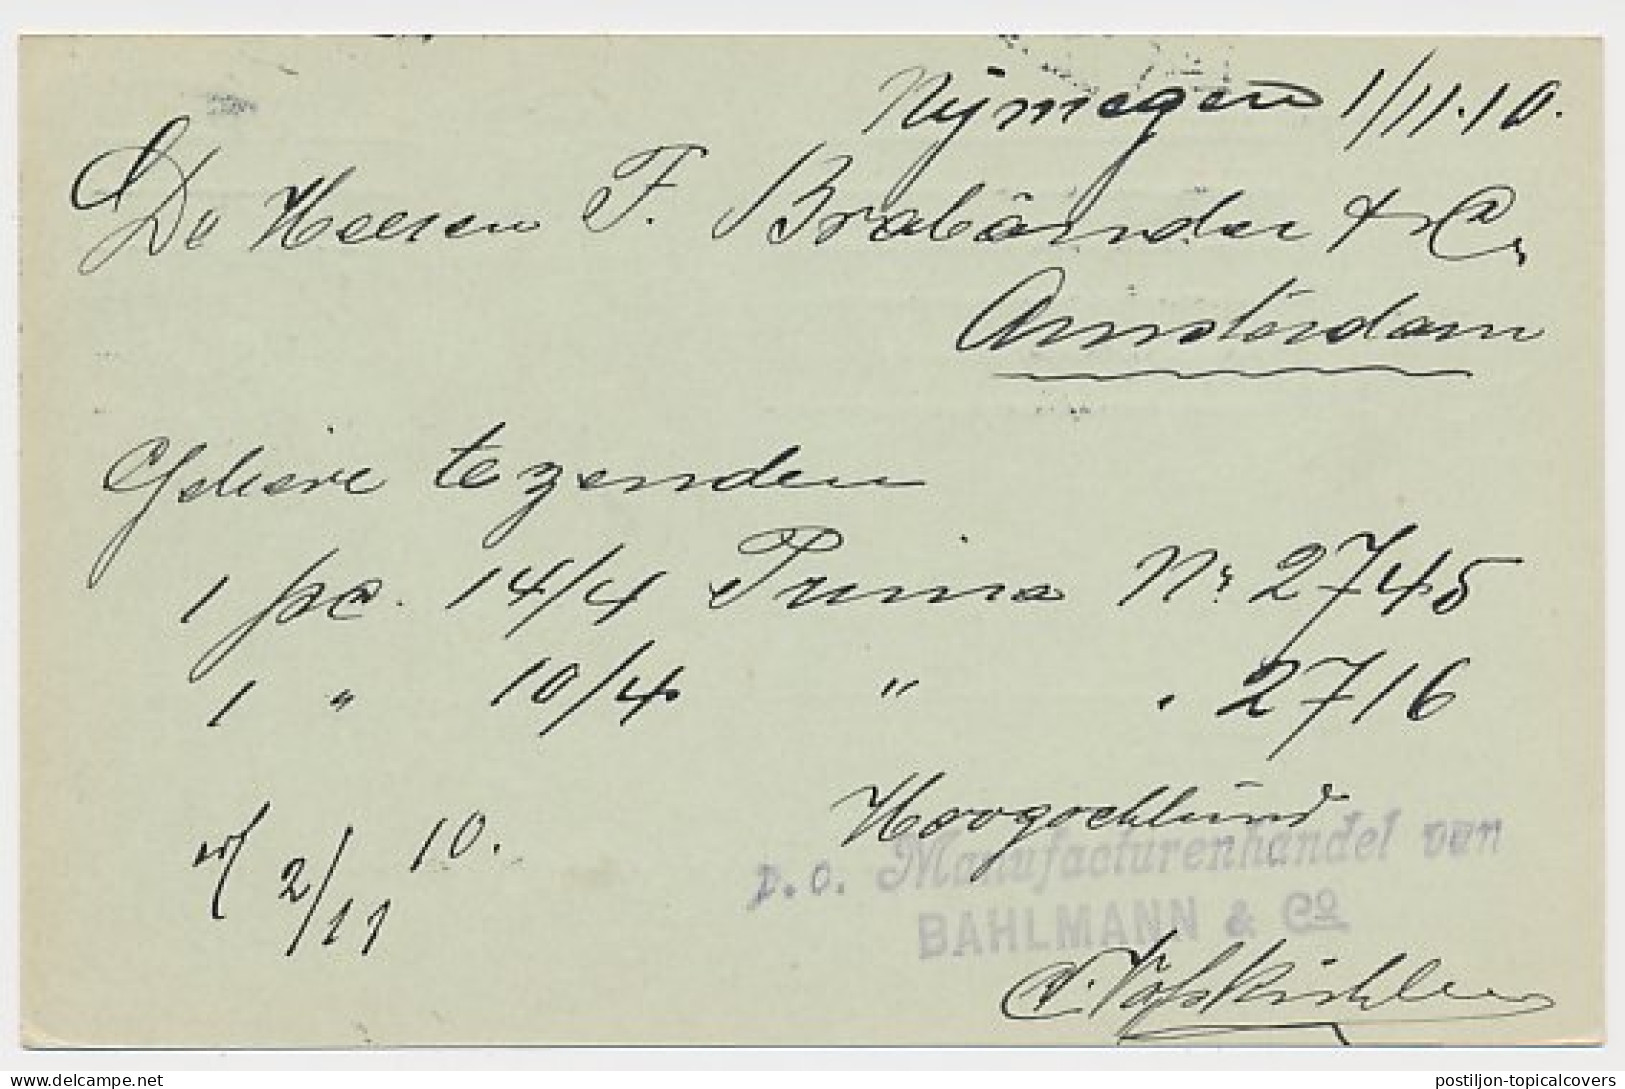 Nijmegen 1/11.10.
De Heeren F. Brabänder & Co
Amsterdam
Gelieve te zenden
1 pc. 14/4 Prima Nr. 2745
1 " 10/4 " . 2716
Hoogachtend
2/11 10.
p.o. Manufacturenhandel van
BAHLMANN & Co
delcampe.net
postiljon-topicalcovers